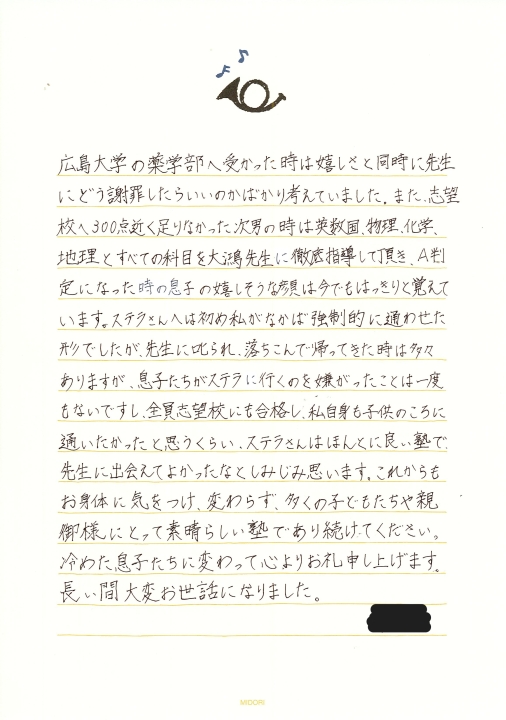 広島大学の薬学部へ受かった時は嬉しさと同時に先生
にどう謝罪したらいいのかばかり考えていました。また、志望
校へ300点近く足りなかった次男の時は英数国、物理、化学、
地理とすべての科目を大鴻先生に徹底指導して頂き、A判
定になった時の息子の嬉しそうな顔は今でもはっきりと覚えて
います。ステラさんへは初め私がなかば強制的に通わせた
形でしたが、先生に叱られ、落ちこんで帰ってきた時は多々
ありますが、息子たちがステラに行くのを嫌がったことは一度
もないですし、全員志望校にも合格し、私自身も子供のころに
通いたかったと思うくらい、ステラさんはほんとに良い塾で、
先生に出会えてよかったなとしみじみ思います。これからも
お身体に気をつけ、変わらず、多くの子どもたちや親
御様にとって素晴らしい塾であり続けてください。
冷めた息子たちに変わって心よりお礼申し上げます。
長い間大変お世話になりました。
MIDORI